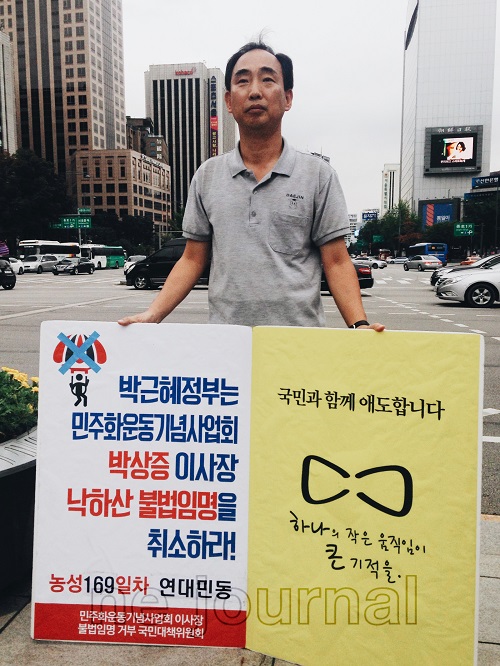 박근혜정부는
민주화운동기념사업회
박상증 이사장
낙하산 불법임명을
취소하라!
농성169일차 연대민동
민주화운동기념사업회 이사장
불법임명 거부 국민대책위원회
국민과 함께 애도합니다
하나의 작은 움직임이
큰 기적을.
The Journal